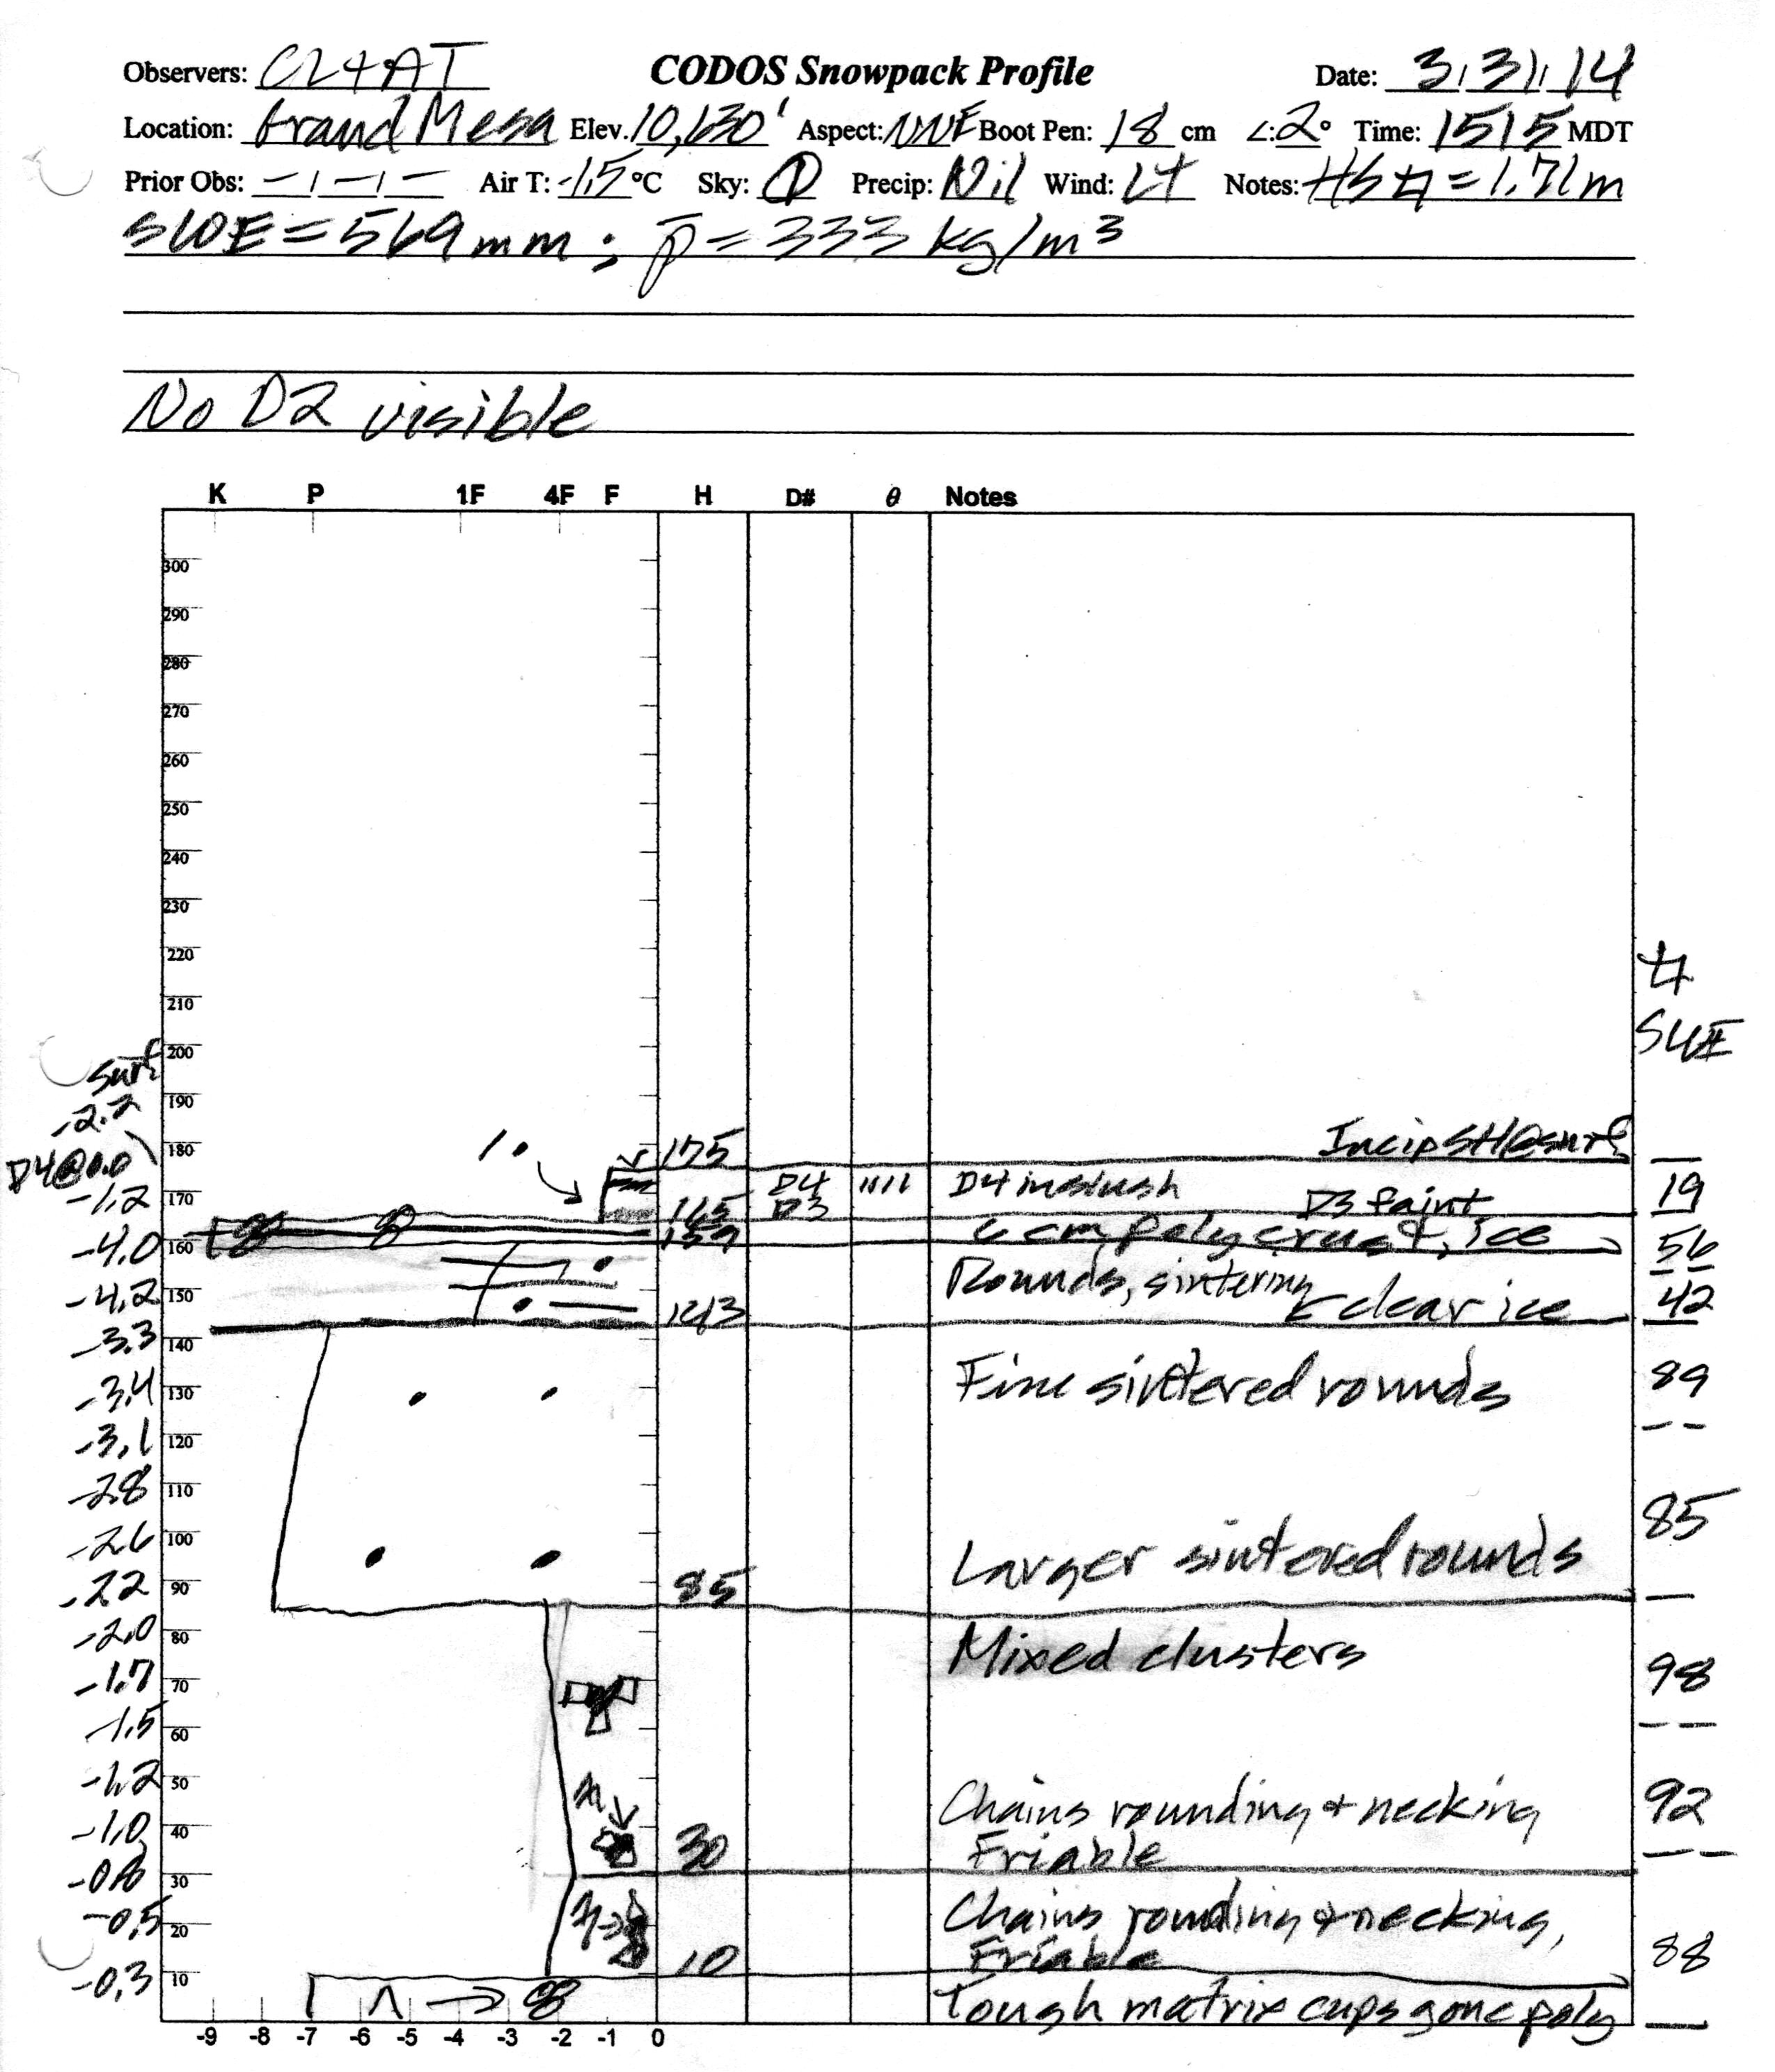 Observers: CL+AT CODOS Snowpack Profile Date: 3/31/14
Location: Grand Mesa Elev. 10,630' Aspect: NNE Boot Pen: 18 cm ∠: 2° Time: 1515 MDT
Prior Obs: -/-/- Air T: -1.5 °C Sky: Precip: Nil Wind: Lt Notes: HS = 1.71m
SWE = 569 mm ; p̄ = 333 kg/m3
No D2 visible
K P 1F 4F F H D# θ Notes
300
290
280
270
260
250
240
230
220
210
SWE
Surf 200
-2.2 190
180 175 Incip SH@surf
D4@0.0
-1.2 170 D4 D4 in slush 19
165 D3 D3 faint
-4.0 160 159 6 cm poly crust, ice 56
-4.2 150 Rounds, sintering 42
143 clear ice
-3.3 140
-3.4 130 Fine sintered rounds 89
-3.1 120
-2.8 110 85
-2.6 100 Larger sintered rounds
-2.2 90 85
-2.0 80 Mixed clusters
-1.7 70 98
-1.5 60
-1.2 50 Chains rounding + necking 92
-1.0 40 30 Friable
-0.8 30
-0.5 20 Chains rounding + necking,
10 Friable 88
-0.3 10 Tough matrix cups gone poly
-9 -8 -7 -6 -5 -4 -3 -2 -1 0